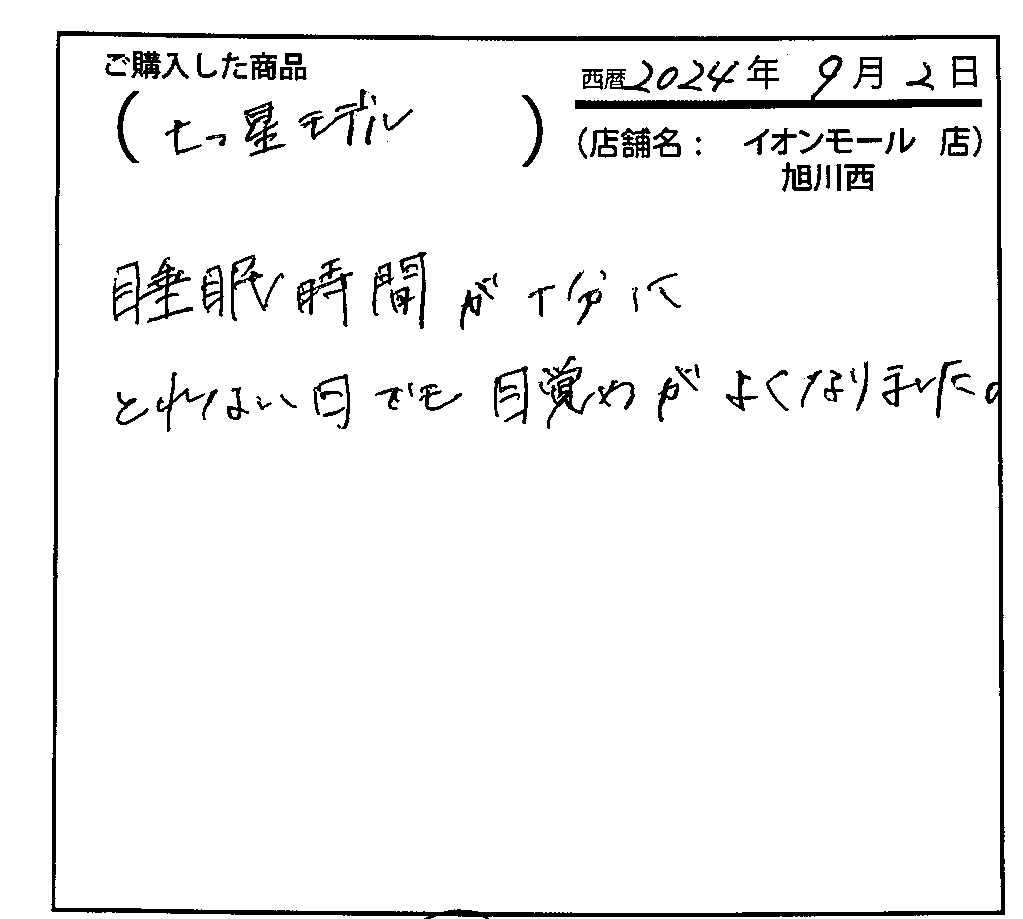 ご購入した商品
(七つ星モデル)
西暦2024年 9月2日
(店舗名: イオンモール 店)
旭川西
睡眠時間が十分に
とれない日でも目覚めがよくなりました。